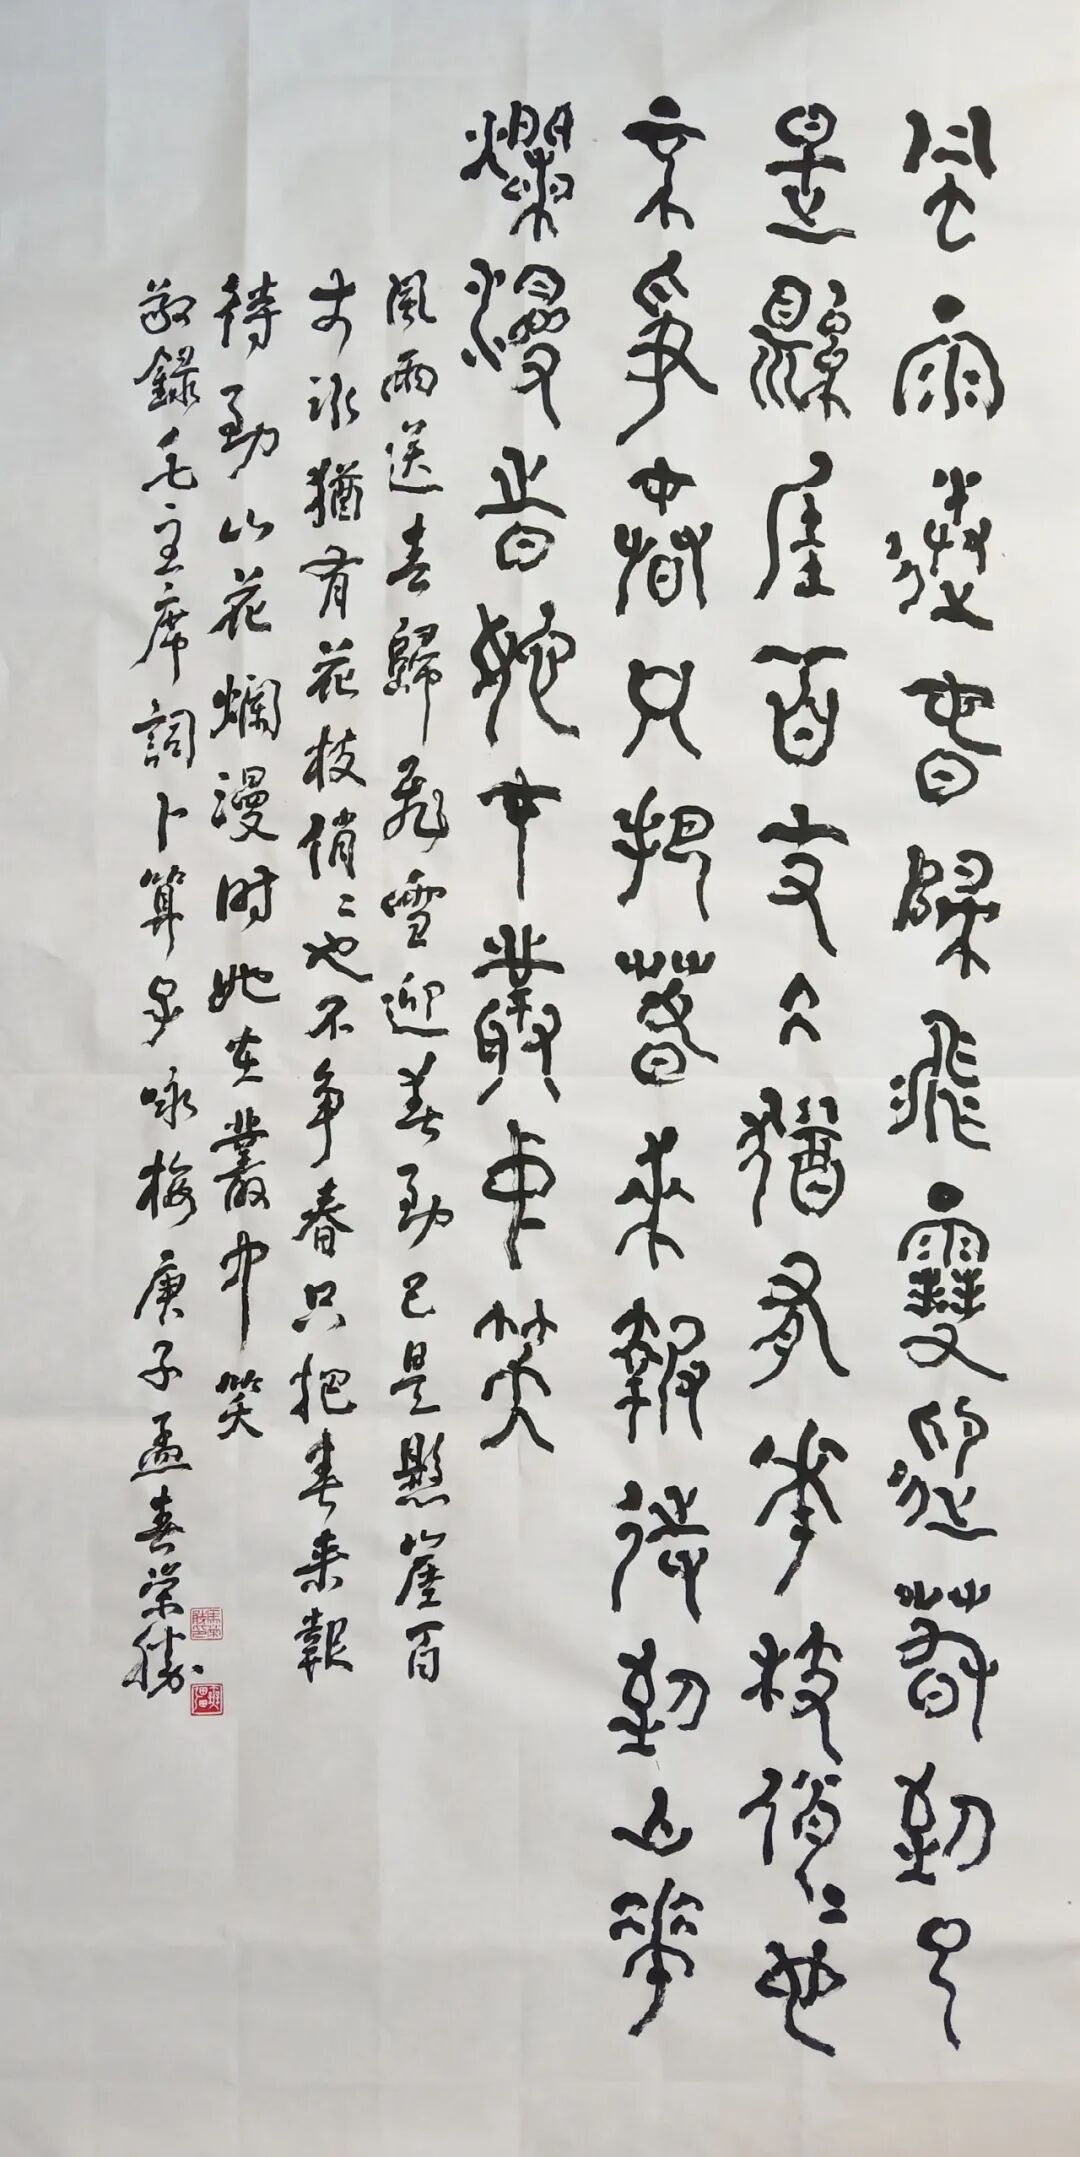 風雨送春歸飛雪迎春到已
是懸崖百丈冰猶有華枝俏〻她
不爭春只把春來報待到山華
爛漫時她在叢中笑
風雨送春歸飛雪迎春到已是懸崖百
丈冰猶有花枝俏〻也不争春只把春来報
待到山花爛漫时她在叢中笑
敬録毛主席詞卜算子咏梅庚子孟春榮勝